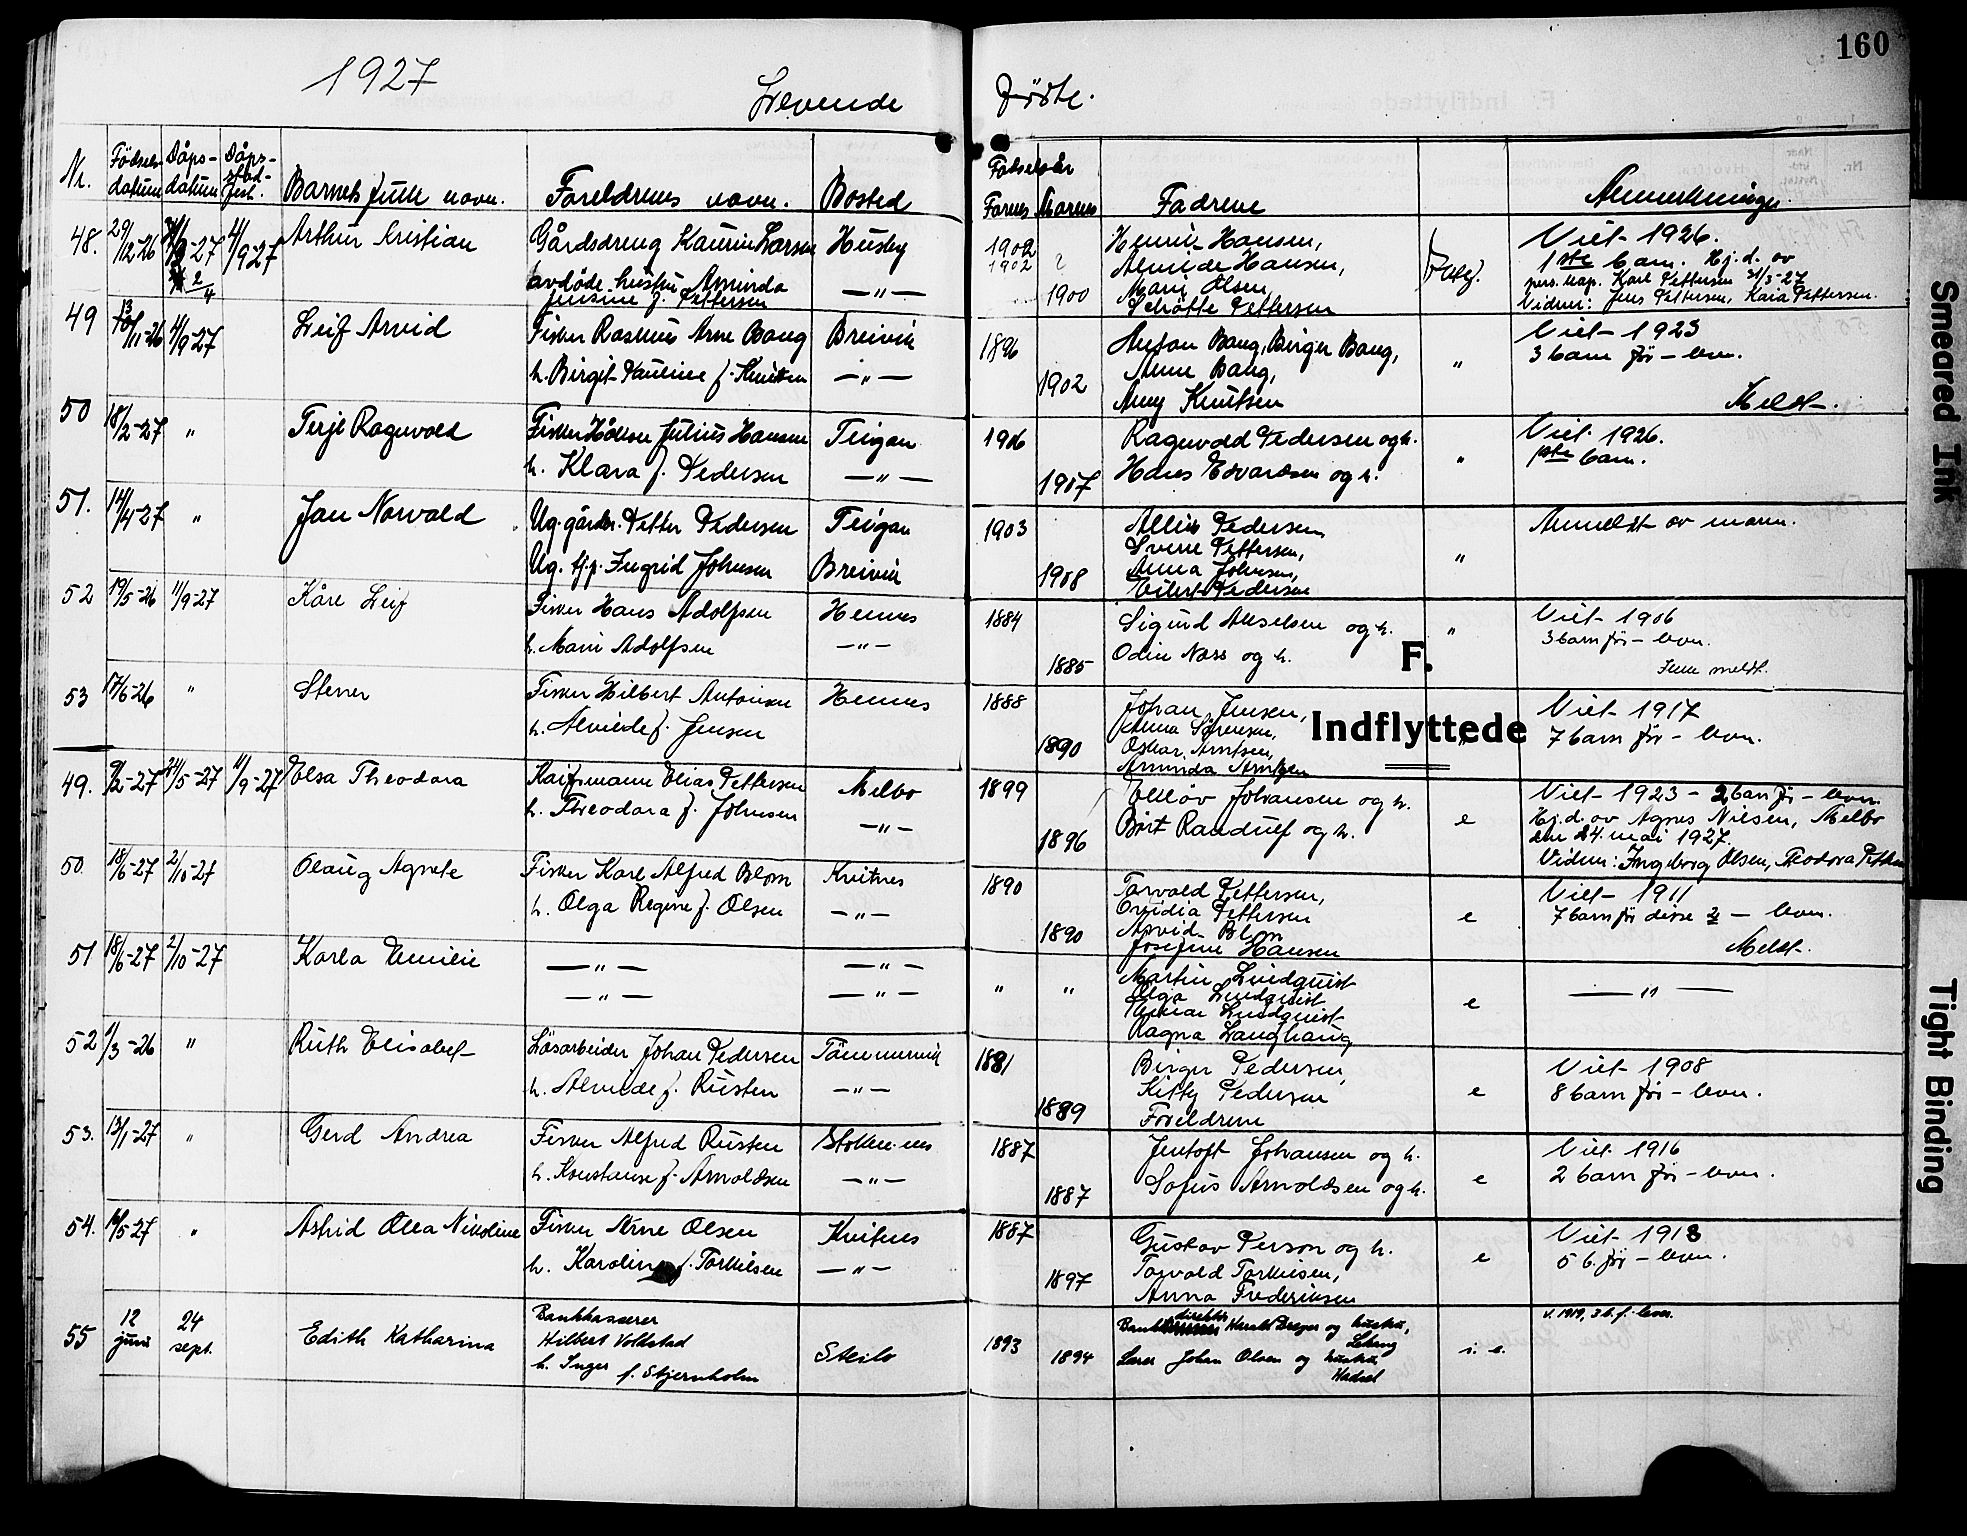 160
1927
Levende
Fødte.
Nr. Fødsels-datum Dåps-datum Dåps-sted-fest. Barnets fulle navn. Foreldrenes navn. Bosted
Fødselsår
Farens Morens Fadrene Anmerkninger
48. 29/12-26 4/9-27 Arthur Kristian Gårdsdreng Larsen Husby
avdøde hustru Arminda — " —
Jensine f. Pettersen
1902 Henrik Hansen, Viet 1926.
1902 Alvilde Hansen, 1ste barn. Hj.d. av
1900 Marie Olsen, Karl Pettersen 31/3-27
Pettersen Vidner: Jens Pettersen, Kaia Pettersen.
49 /11-26 4/9-27 Leif Arvid Fisker Rasmus Arne Bang Breivik
h. Birgit Pauline f. Knutsen — " —
1896 Anton Bang, Birger Bang, " Viet 1923
Anne Bang, 3 barn før - lever.
1902 Amy Knutsen Meldt.
50 18/2-27 " Terje Ragnvald Fisker Håkon Julius Hansen Teigan
h. Klara f. Pedersen — " —
1906 Ragnvald Pedersen og h. " Viet 1926.
1907 Hans Edvardsen og h. 1ste barn.
51. 14/4-27 " Jan Norvald Ug. gårdbr. Petter Pedersen Teigan
Ug. tj.p. Ingrid Johnsen Breivik
1903 Pedersen " Anmeldt av moren.
Sverre Pettersen,
1908 Anna Johnsen,
Eilert Pedersen
52 19/5-26 11/9-27 Kåre Leif Fisker Hans Adolfsen Hennes
h. Marie Adolfsen — " —
1884 Sigurd Akselsen og h. " Viet 1906
3 barn før - lever.
1885 Odin Næss og h. Ikke meldt.
F.
53 17/6-26 " Steiner Fisker Hilbert Antonsen Hennes
h. Alvilde f. Jensen
1888 Johan Jensen, Viet 1917
Anna Sørensen, 7 barn før - lever.
Indflyttede
1890 Oskar Arntsen,
Arminda Arntsen
49. 9/2-27 24/5-27 11/9-27 Elsa Theodora Kaifarmann Elias Pettersen Melbo
h. Theodora f. Johnsen — " —
1899 Johansen og h. e Viet 1923 - 2 barn før - lever
Hj.d. av Agnes Nilsen, Melbo
1896 Birt Randulf og h. den 24. mai 1927.
Vidner: Ingeborg Olsen, Theodora
50. 18/6-27 2/10-27 Olaug Agnete Fisker Karl Alfred Blom Kvitnes
h. Olga Regine f. Olsen — " —
1890 Torvald Pettersen, e Viet 1911
Ovidia Pettersen 7 barn før disse 2 - lever.
1890 Arvid Blom
Josefine Hansen Meldt.
51 18/6-27 2/10-27 Karla Emilie — " — — " —
— " — — " —
" " Martin Lindquist e — " —
Olga Lindquist
Lindquist
Ragna Langhaug
52 /3-26 " Ruth Elisabet Løsarbeider Johan Pedersen
h. Alvilde f. Rusten — " —
1881 Birger Pedersen, e Viet 1908
Kitty Pedersen 8 barn før - lever.
1889 Foreldrene
53. 13/1-27 " Gerd Andrea Fisker Alfred Rusten Stokmarknes
h. Konstanse f. Arnoldsen — " —
1887 Jentoft Johansen og h. e Viet 1916
1887 Sofus Arnoldsen og h. 2 barn før - lever.
54. 16/5-27 " Astrid Olea Nikoline Fisker Arne Olsen Kvitnes
h. Karoline f. Torkilsen — " —
1887 Gustav Person og h. e Viet 1918
1897 Torvald Torkilsen, 5 b. før - lever.
Anna Frederiksen
55 12 juni 24 sept. Edith Katharina Bankkasserer
Hilbert Voldstad Steilo
h. Inger f. Stjernholm
1893 direktør Harald Dreyer og hustru, i. e. v. 1919, 3 b. f. lever.
Lekang
1894 Lærer Johan Olsen og hustru,
Hadsel
Smeared Ink
Tight Binding